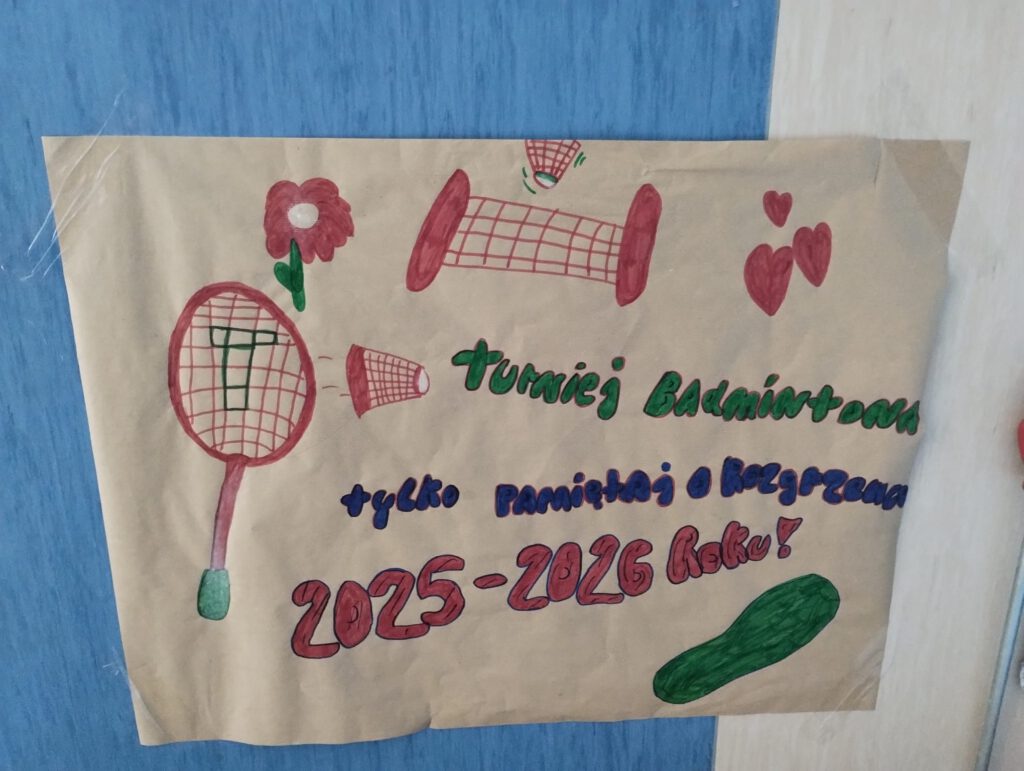 T
Turniej Badmintona
tylko pamiętaj o Rozgrzewce
2025-2026 Roku!